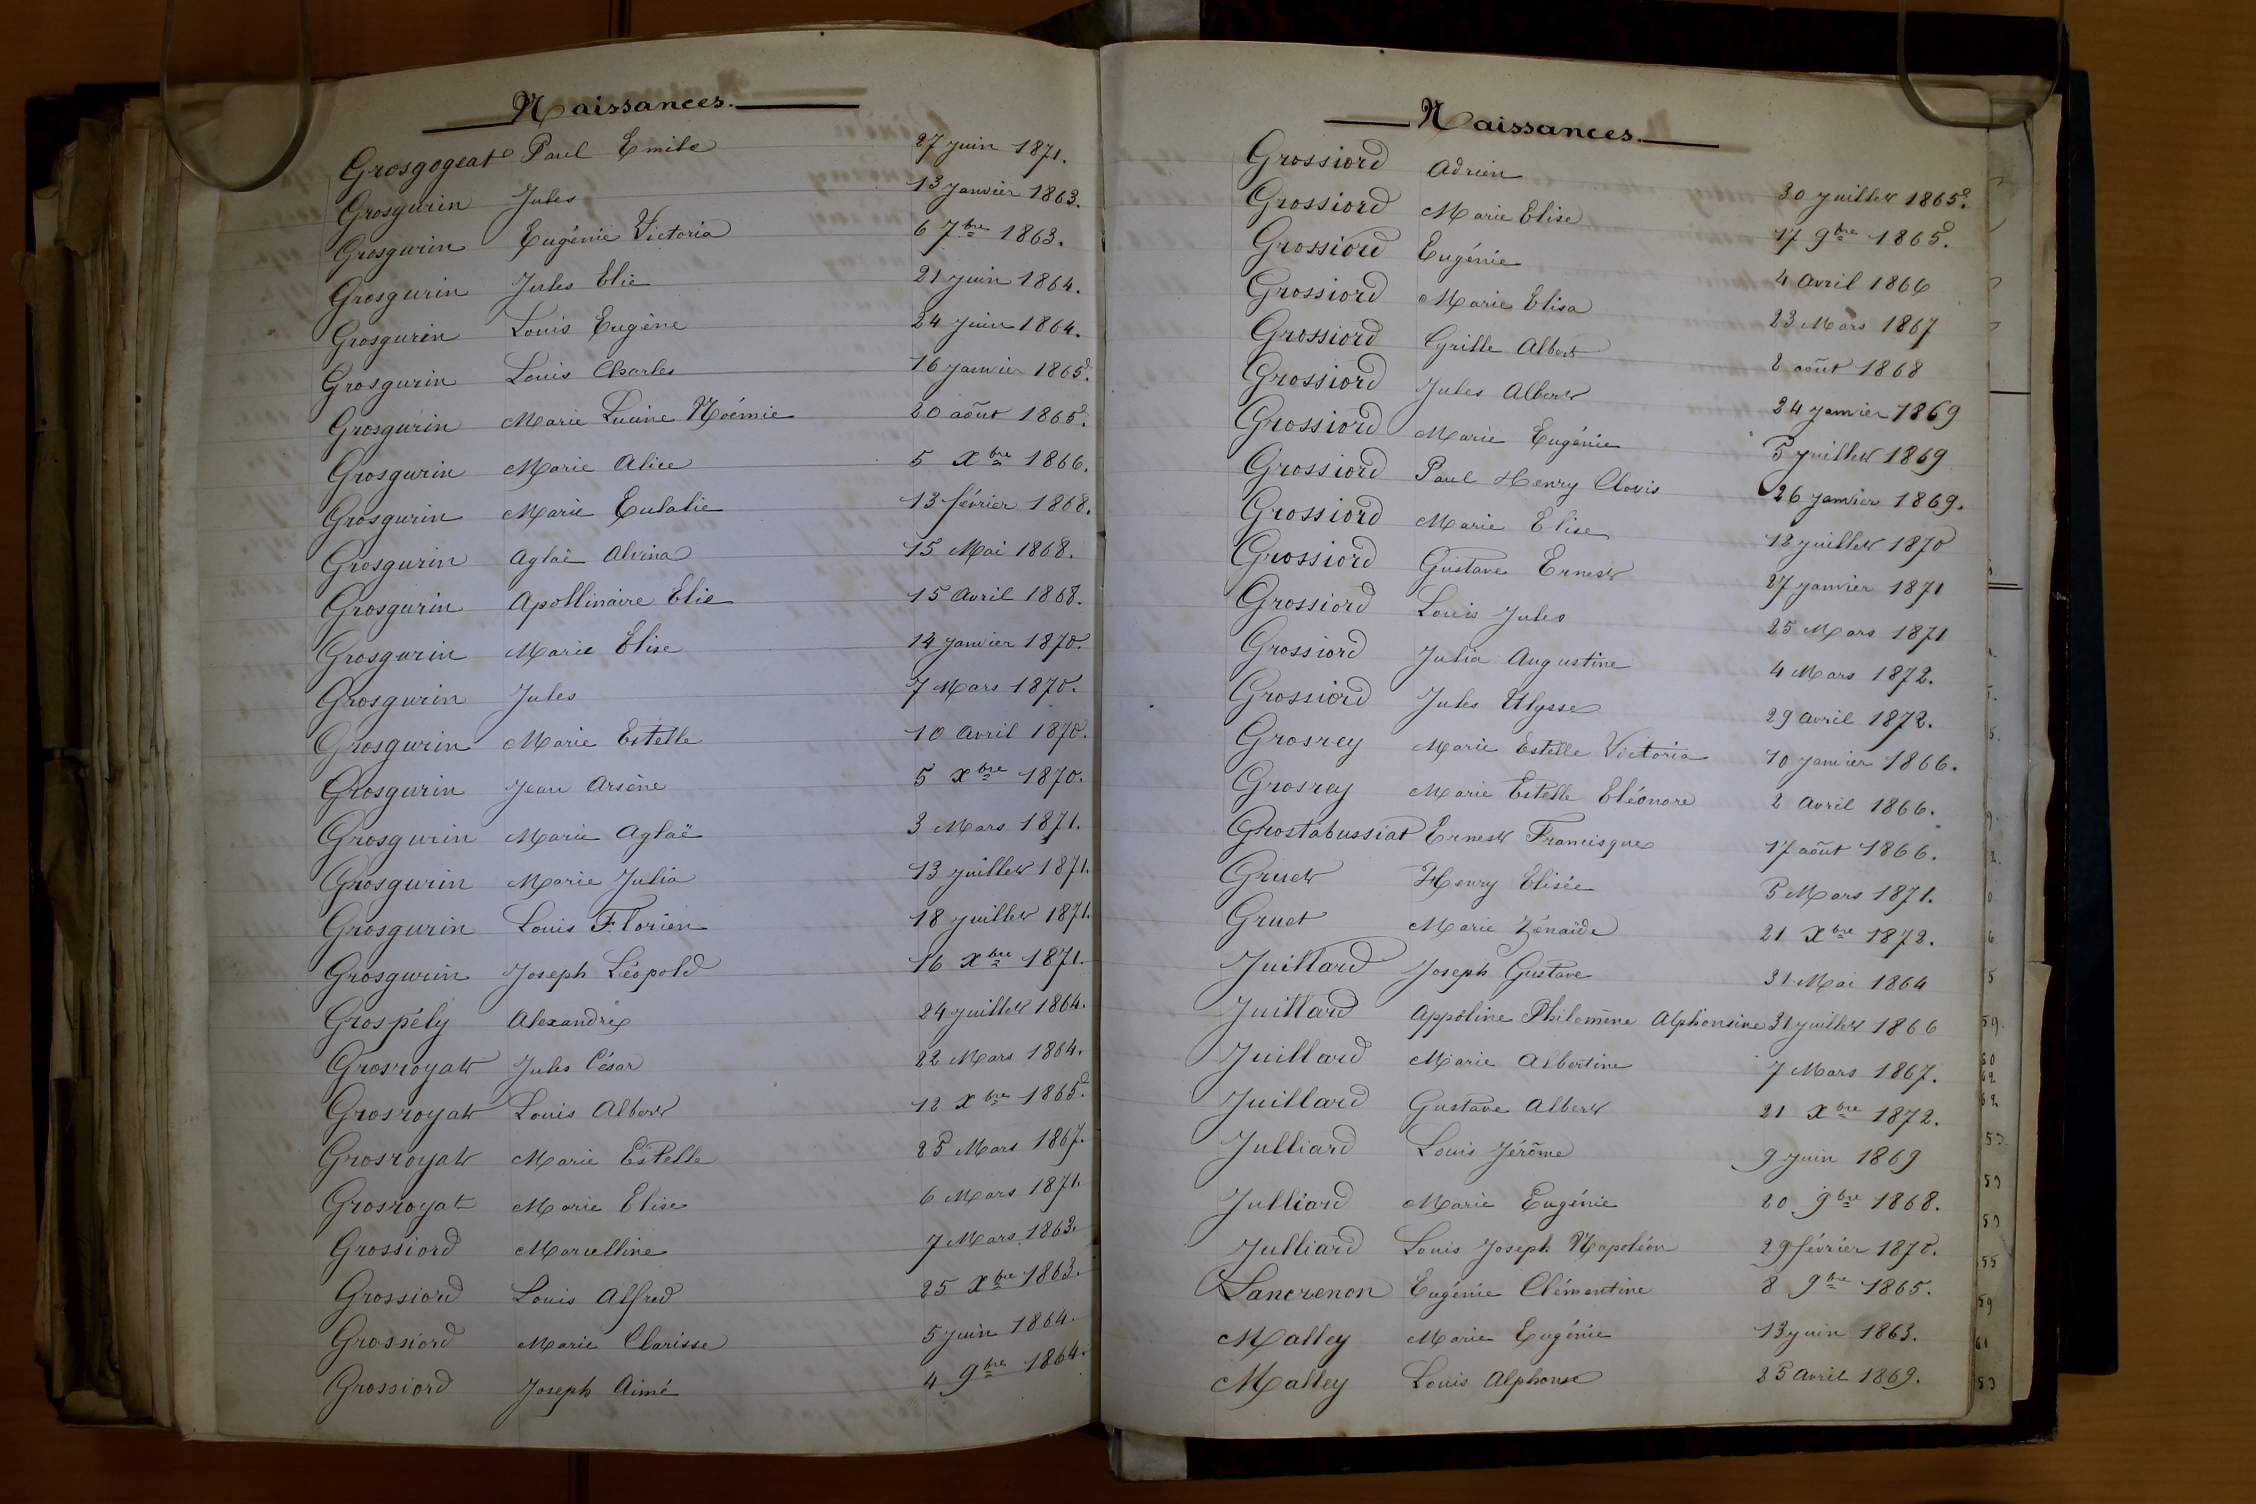 Naissances.
Grosgogeat Paul Emile 27 juin 1871.
Grosgurin Jules 13 janvier 1863.
Grosgurin Eugénie Victoria 6 7bre 1863.
Grosgurin Jules Elie 21 juin 1864.
Grosgurin Louis Eugène 24 juin 1864.
Grosgurin Louis Charles 16 janvier 1865.
Grosgurin Marie Lucine Noémie 20 août 1865.
Grosgurin Marie Alice 5 Xbre 1866.
Grosgurin Marie Eulalie 13 février 1868.
Grosgurin Aglaé Alvina 15 Mai 1868.
Grosgurin Apollinaire Elie 15 Avril 1868.
Grosgurin Marie Elise 14 janvier 1870.
Grosgurin Jules 7 Mars 1870.
Grosgurin Marie Estelle 10 Avril 1870.
Grosgurin Jean Arsène 5 Xbre 1870.
Grosgurin Marie Aglaë 3 Mars 1871.
Grosgurin Marie Julia 13 juillet 1871.
Grosgurin Louis Florien 18 juillet 1871.
Grosgurin Joseph Léopold 16 Xbre 1871.
Grospély Alexandre 24 juillet 1864.
Grosroyat Jules César 22 Mars 1864.
Grosroyat Louis Albert 12 Xbre 1865.
Grosroyat Marie Estelle 25 Mars 1867.
Grosroyat Marie Elise 6 Mars 1871.
Grossiord Marcelline 7 Mars 1863.
Grossiord Louis Alfred 25 Xbre 1863.
Grossiord Marie Clarisse 5 juin 1864.
Grossiord Joseph Aimé 4 9bre 1864.
Naissances.
Grossiord Adrien 30 juillet 1865.
Grossiord Marie Elise 17 9bre 1865.
Grossiord Eugénie 4 Avril 1866
Grossiord Marie Elisa 23 Mars 1867
Grossiord Cyrille Albert 2 août 1868
Grossiord Jules Albert 24 janvier 1869
Grossiord Marie Eugénie 5 juillet 1869
Grossiord Paul Henry Clovis 26 janvier 1869.
Grossiord Marie Elise 12 juillet 1870
Grossiord Gustave Ernest 27 janvier 1871
Grossiord Louis Jules 25 Mars 1871
Grossiord Julia Augustine 4 Mars 1872.
Grossiord Jules Ulysse 29 avril 1872.
Grosrey Marie Estelle Victoria 10 janvier 1866.
Grosrey Marie Estelle Eléonore 2 Avril 1866.
Grostabussiat Ernest Francisque 17 août 1866.
Gruet Henry Elisée 5 Mars 1871.
Gruet Marie Zénaïde 21 Xbre 1872.
Juillard Joseph Gustave 31 Mai 1864
Juillard Appoline Philomène Alphonsine 31 juillet 1866
Juillard Marie Albertine 7 Mars 1867.
Juillard Gustave Albert 21 Xbre 1872.
Julliard Louis Jérôme 9 juin 1869
Julliard Marie Eugénie 20 9bre 1868.
Julliard Louis Joseph Napoléon 29 février 1870.
Lancrenon Eugénie Clémentine 8 9bre 1865.
Malley Marie Eugénie 13 juin 1863.
Malley Louis Alphonse 25 Avril 1869.